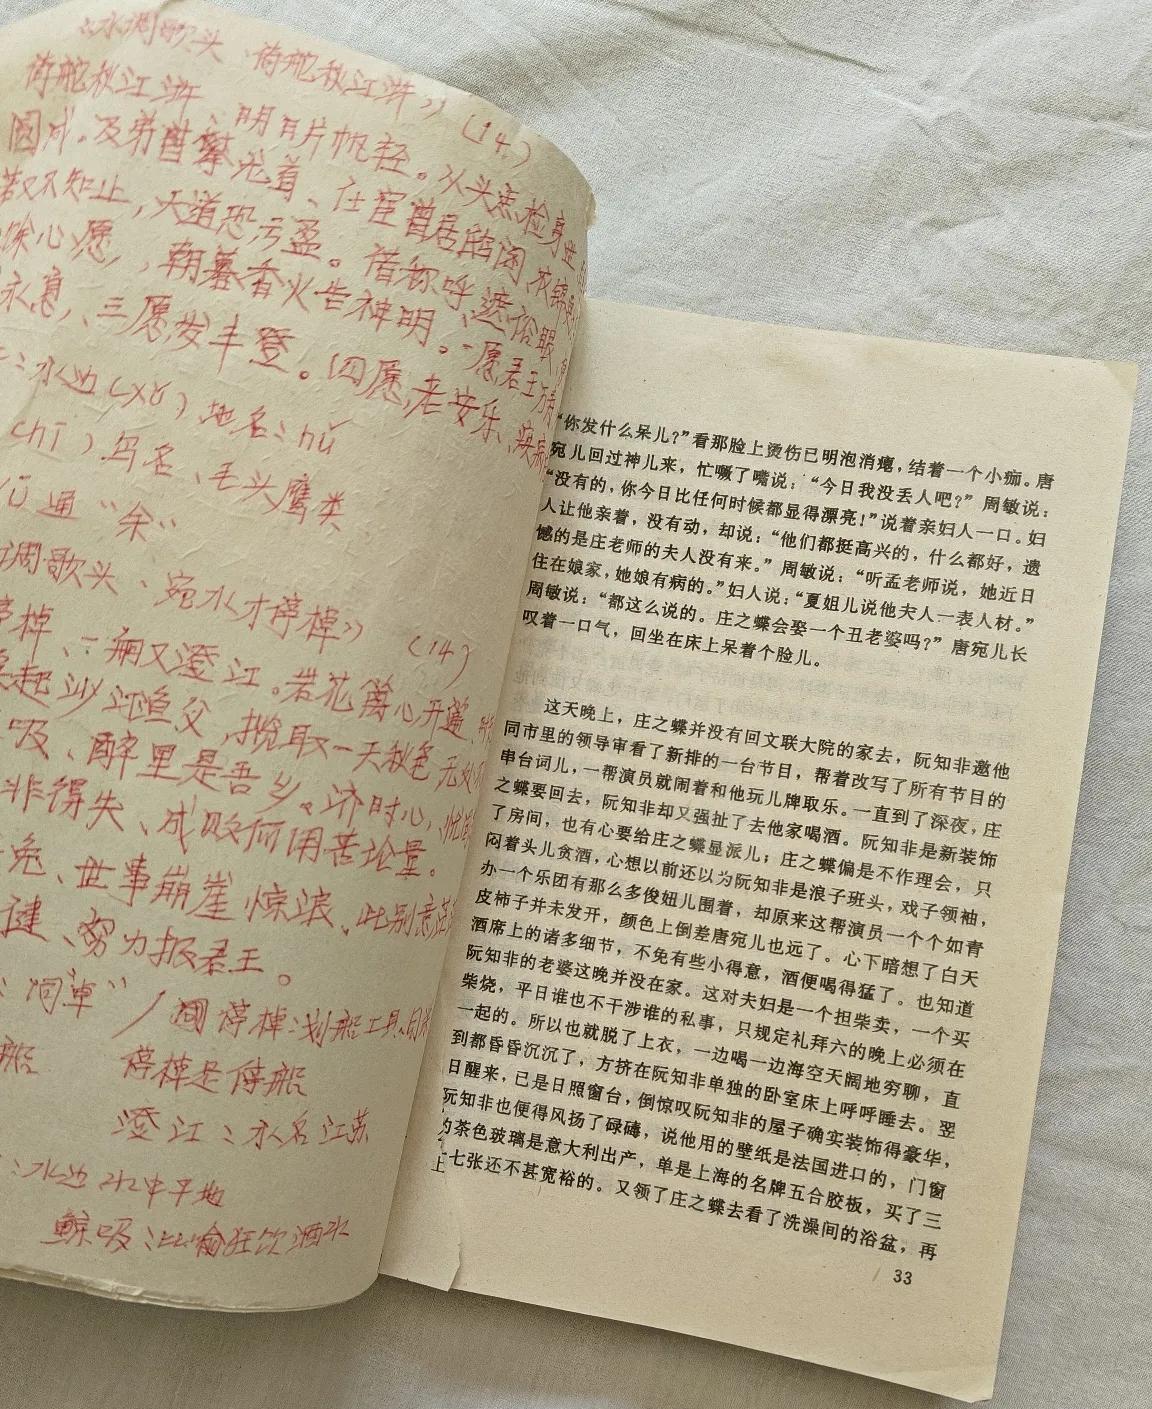 《水调歌头、倚舵秋江浒》(14)
倚舵秋江浒、明月片帆轻。从头点检身世
圆成。及第曾攀龙首、仕宦曾居鼎阁、衣锦
若又不知止,天道恐亏盈。借称呼,遮俗眼
心愿,朝暮香火告神明。一愿君王万寿
三愿岁丰登。四愿,老安乐、疾病
:水边(xǔ)地名:hǔ
(chī)鸟名、毛头鹰类
通"余"
调歌头、宛水才停棹》(14)
停棹、一舸又澄江。若花篱心开遍
起沙汀渔父,揽取一天秋色
吸、醉里是吾乡。济时心
非得失、成败何用苦论量。
兔、世事崩崖惊浪、此别意茫
健、努力报君王。
停棹:划船工具、同
停棹是停船
澄江:水名江苏
:水边 水中平地
鲸吸:比喻狂饮酒水
“你发什么呆儿?”看那脸上烫伤已明泡消瘪,结着一个小痂。唐
宛儿回过神儿来,忙噘了嘴说:“今日我没丢人吧?”周敏说:
“没有的,你今日比任何时候都显得漂亮!”说着亲妇人一口。妇
人让他亲着,没有动,却说:“他们都挺高兴的,什么都好,遗
憾的是庄老师的夫人没有来。”周敏说:“听孟老师说,她近日
住在娘家,她娘有病的。”妇人说:“夏姐儿说他夫人一表人材。”
周敏说:“都这么说的。庄之蝶会娶一个丑老婆吗?”唐宛儿长
叹着一口气,回坐在床上呆着个脸儿。
这天晚上,庄之蝶并没有回文联大院的家去,阮知非邀他
同市里的领导审看了新排的一台节目,帮着改写了所有节目的
串台词儿,一帮演员就闹着和他玩儿牌取乐。一直到了深夜,庄
之蝶要回去,阮知非却又强扯了去他家喝酒。阮知非是新装饰
了房间,也有心要给庄之蝶显派儿;庄之蝶偏是不作理会,只
闷着头儿贪酒,心想以前还以为阮知非是浪子班头,戏子领袖,
办一个乐团有那么多俊妞儿围着,却原来这帮演员一个个如青
皮柿子并未发开,颜色上倒差唐宛儿也远了。心下暗想了白天
酒席上的诸多细节,不免有些小得意,酒便喝得猛了。也知道
阮知非的老婆这晚并没在家。这对夫妇是一个担柴卖,一个买
柴烧,平日谁也不干涉谁的私事,只规定礼拜六的晚上必须在
一起的。所以也就脱了上衣,一边喝一边海空天阔地穷聊,直
到都昏昏沉沉了,方挤在阮知非单独的卧室床上呼呼睡去。翌
日醒来,已是日照窗台,倒惊叹阮知非的屋子确实装饰得豪华,
阮知非也便得风扬了碌碡,说他用的壁纸是法国进口的,门窗
的茶色玻璃是意大利出产,单是上海的名牌五合胶板,买了三
十七张还不甚宽裕的。又领了庄之蝶去看了洗澡间的浴盆,再
33